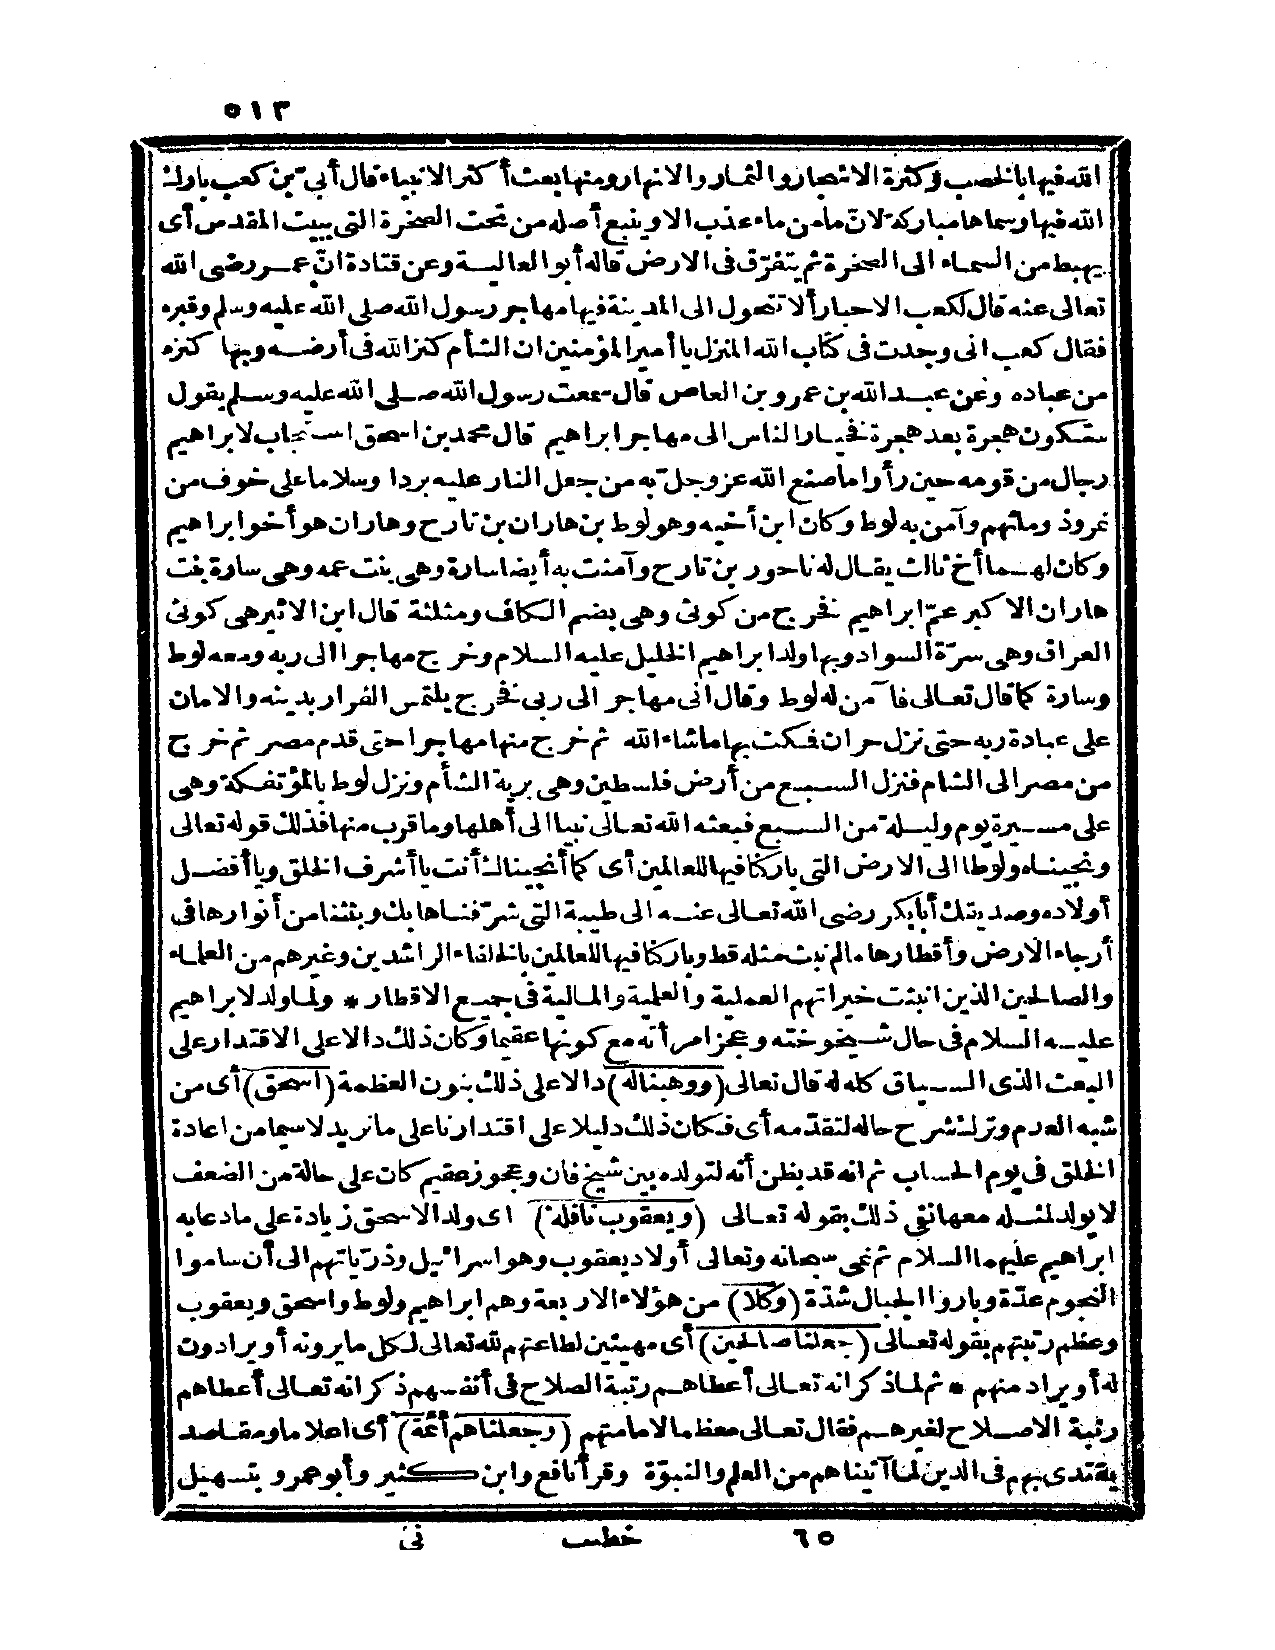 ٥١٣
الله فيها بالخصب وكثرة الاشجار والثمار والانهار ومنها بعث أكثر الانبياء قال أبيّ بن كعب بارك
الله فيها وسماها مباركة لانّ ما من ماء عذب الا وينبع أصله من تحت الصخرة التى ببيت المقدس أى
يهبط من السماء الى الصخرة ثم يتفرّق فى الارض قاله أبو العالية وعن قتادة انّ عمر رضى الله
تعالى عنه قال لكعب الاحبار ألا تتحول الى المدينة فيها مهاجر رسول الله صلى الله عليه وسلم وقبره
فقال كعب انى وجدت فى كتاب الله المنزل يا أمير المؤمنين ان الشأم كنز الله فى أرضه وبها كنزه
من عباده وعن عبد الله بن عمرو بن العاص قال سمعت رسول الله صلى الله عليه وسلم يقول
ستكون هجرة بعد هجرة فخيار الناس الى مهاجر ابراهيم قال محمد بن اسحق استجاب لابراهيم
رجال من قومه حين رأوا ما صنع الله عز وجل به من جعل النار عليه بردا وسلاما على خوف من
نمروذ وملئهم وآمن به لوط وكان ابن أخيه وهو لوط بن هاران بن تارح وهاران هو أخو ابراهيم
وكان لهما أخ ثالث يقال له ناحور بن تارح وآمنت به أيضا سارة وهى بنت عمه وهى سارة بنت
هاران الاكبر عمّ ابراهيم فخرج من كوثى وهى بضم الكاف ومثلثة قال ابن الاثير هى كوثى
العراق وهى سرّة السواد وبها ولد ابراهيم الخليل عليه السلام وخرج مهاجرا الى ربه ومعه لوط
وسارة كما قال تعالى فآمن له لوط وقال انى مهاجر الى ربى فخرج يلتمس الفرار بدينه والامان
على عبادة ربه حتى نزل حران فمكث بها ما شاء الله ثم خرج منها مهاجرا حتى قدم مصر ثم خرج
من مصر الى الشام فنزل السبع من أرض فلسطين وهى برية الشأم ونزل لوط بالمؤتفكة وهى
على مسيرة يوم وليلة من السبع فبعثه الله تعالى نبيا الى أهلها وما قرب منها فذلك قوله تعالى
ونجيناه ولوطا الى الارض التى باركنا فيها للعالمين أى كما أنجيناك أنت يا أشرف الخلق ويا أفضل
أولاده وصديقك أبا بكر رضى الله تعالى عنه الى طيبة التى شرّفناها بك وبثثنا من أنوارها فى
أرجاء الارض وأقطارها ما لم نبث مثله قط وباركنا فيها للعالمين بالخلفاء الراشدين وغيرهم من العلماء
والصالحين الذين انبثت خيراتهم العملية والعلمية والمالية فى جميع الاقطار * ولما ولد لابراهيم
عليه السلام فى حال شيخوخته وعجز امرأته مع كونها عقيما وكان ذلك دالا على الاقتدار على
البعث الذى السياق كله له قال تعالى (ووهبنا له) دالا على ذلك بنون العظمة (اسحق) أى من
شبه العدم وترك شرح حاله لتقدّمه أى فكان ذلك دليلا على اقتدارنا على ما نريد لا سيما من اعادة
الخلق فى يوم الحساب ثم انه قد يظن أنه لتولده بين شيخ فان وعجوز عقيم كان على حالة من الضعف
لا يولد لمثله معها نفى ذلك بقوله تعالى (ويعقوب نافلة) اى ولد الاسحق زيادة على ما دعا به
ابراهيم عليهما السلام ثم نمى سبحانه وتعالى أولاد يعقوب وهو اسرائيل وذرّياتهم الى أن ساموا
النجوم عدّة وباروا الجبال شدّة (وكلا) من هؤلاء الاربعة وهم ابراهيم ولوط واسحق ويعقوب
وعظم رتبتهم بقوله تعالى (جعلنا صالحين) أى مهيئين لطاعتهم لله تعالى لكل ما يرونه أو يرادون
له أو يراد منهم * ثم لما ذكر انه تعالى أعطاهم رتبة الصلاح فى أنفسهم ذكر انه تعالى أعطاهم
رتبة الاصلاح لغيرهم فقال تعالى معظما لامامتهم (وجعلناهم أئمّة) أى اعلاما ومقاصد
يقتدى بهم فى الدين لما آتيناهم من العلم والنبوّة وقرأ نافع وابن كثير وأبو عمرو بتسهيل
٦٥ خطيب نى